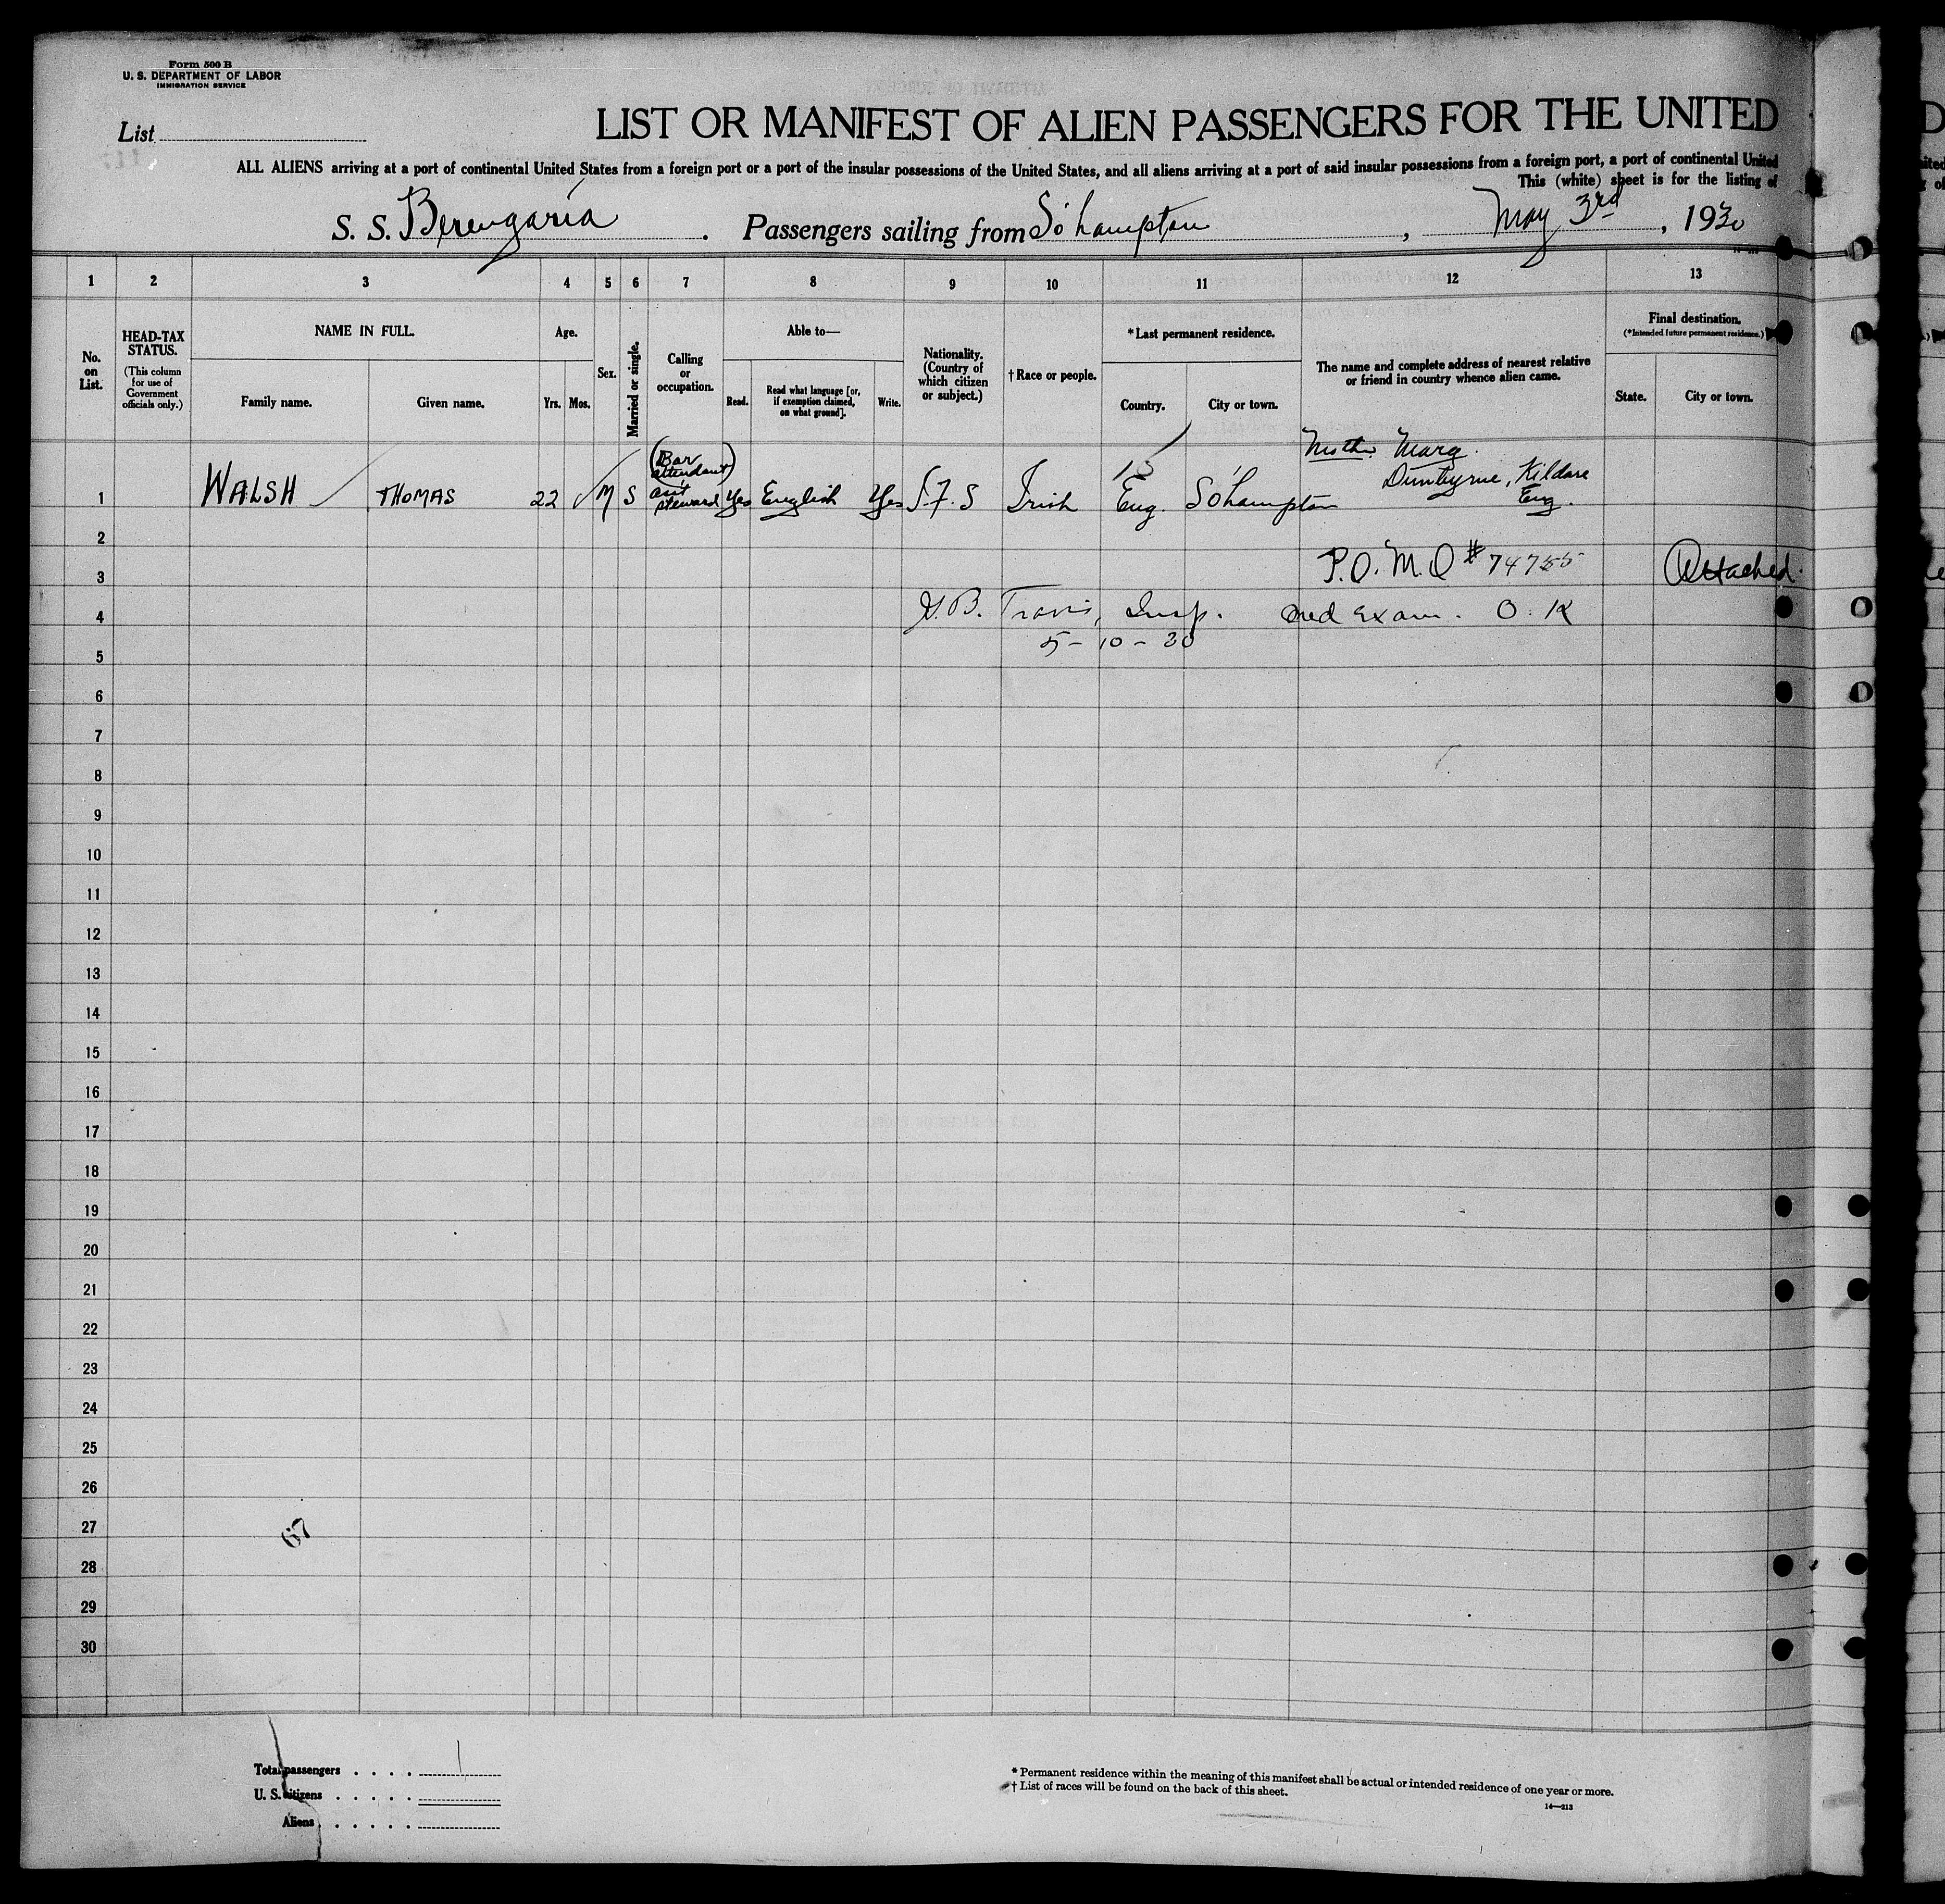 Form 500 B
U. S. DEPARTMENT OF LABOR
IMMIGRATION SERVICE
List
LIST OR MANIFEST OF ALIEN PASSENGERS FOR THE UNITED
ALL ALIENS arriving at a port of continental United States from a foreign port or a port of the insular possessions of the United States, and all aliens arriving at a port of said insular possessions from a foreign port, a port of continental United
This (white) sheet is for the listing of
S. S. Berengaria . Passengers sailing from So'hampton , May 3rd , 1930
1 2 3 4 5 6 7 8 9 10 11 12 13
No. on List.
HEAD-TAX STATUS.
(This column for use of Government officials only.)
NAME IN FULL.
Family name. Given name.
Age.
Yrs. Mos.
Sex.
Married or single.
Calling or occupation.
Able to—
Read. Read what language [or, if exemption claimed, on what ground]. Write.
Nationality. (Country of which citizen or subject.)
†Race or people.
*Last permanent residence.
Country. City or town.
The name and complete address of nearest relative or friend in country whence alien came.
Final destination.
(*Intended future permanent residence.)
State. City or town.
Mother Marg.
(Bar attendant)
Kildare
1 WALSH THOMAS 22 M S steward Yes English Yes I.F.S Irish Eng. So'hampton Eng.
2
P.O. M.O #74755 Attached.
3
4 Travis, Insp. Med Exam. O.K
5-10-30
5
6
7
8
9
10
11
12
13
14
15
16
17
18
19
20
21
22
23
24
25
26
27
67
28
29
30
Total passengers . . . . 1
U. S. citizens . . . . .
Aliens . . . . .
* Permanent residence within the meaning of this manifest shall be actual or intended residence of one year or more.
† List of races will be found on the back of this sheet.
14—213